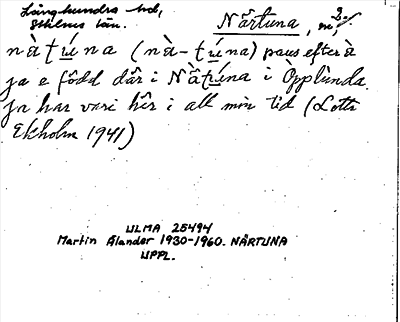 Långhundra hd,
Sthlms län.
Närtuna, n. 3.
nàtú̲na (nà-tú̲na) paus efter à
ja e född där i Nä̀tú̲na i Òpplùnda.
ja har vari hêr i all min tid (Lotta
Ekholm 1941)
ULMA 25494
Martin Ölander 1930-1960. NÄRTUNA
UPPL.